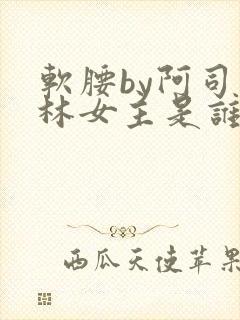 軟腰by阿司
林女主是誰
西瓜天使苹果